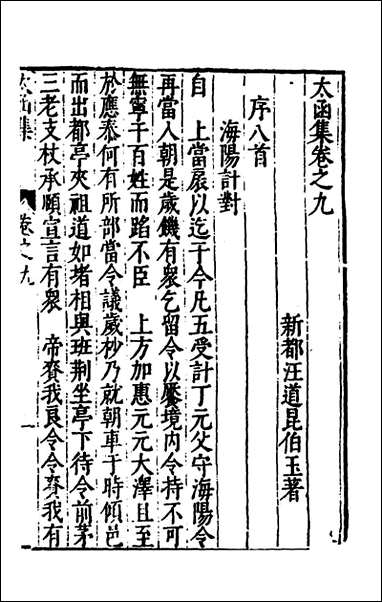 太函集卷之九
新都汪道昆伯玉著
序八首
海陽計對
自　上當扆以迄于今凡五受計丁元父守海陽令
再當入朝是歲饑有衆乞留令以饜境内令持不可
無寧干百姓而蹈不臣　上方加惠元元大澤且至
於應泰何有所部當令議歲杪乃就朝車于時傾邑
而出都亭夾祖道如堵相與班荆坐亭下待令前茅
三老支杖承願宣言有衆　帝賚我良令令賚我有
太函集　卷之九　一